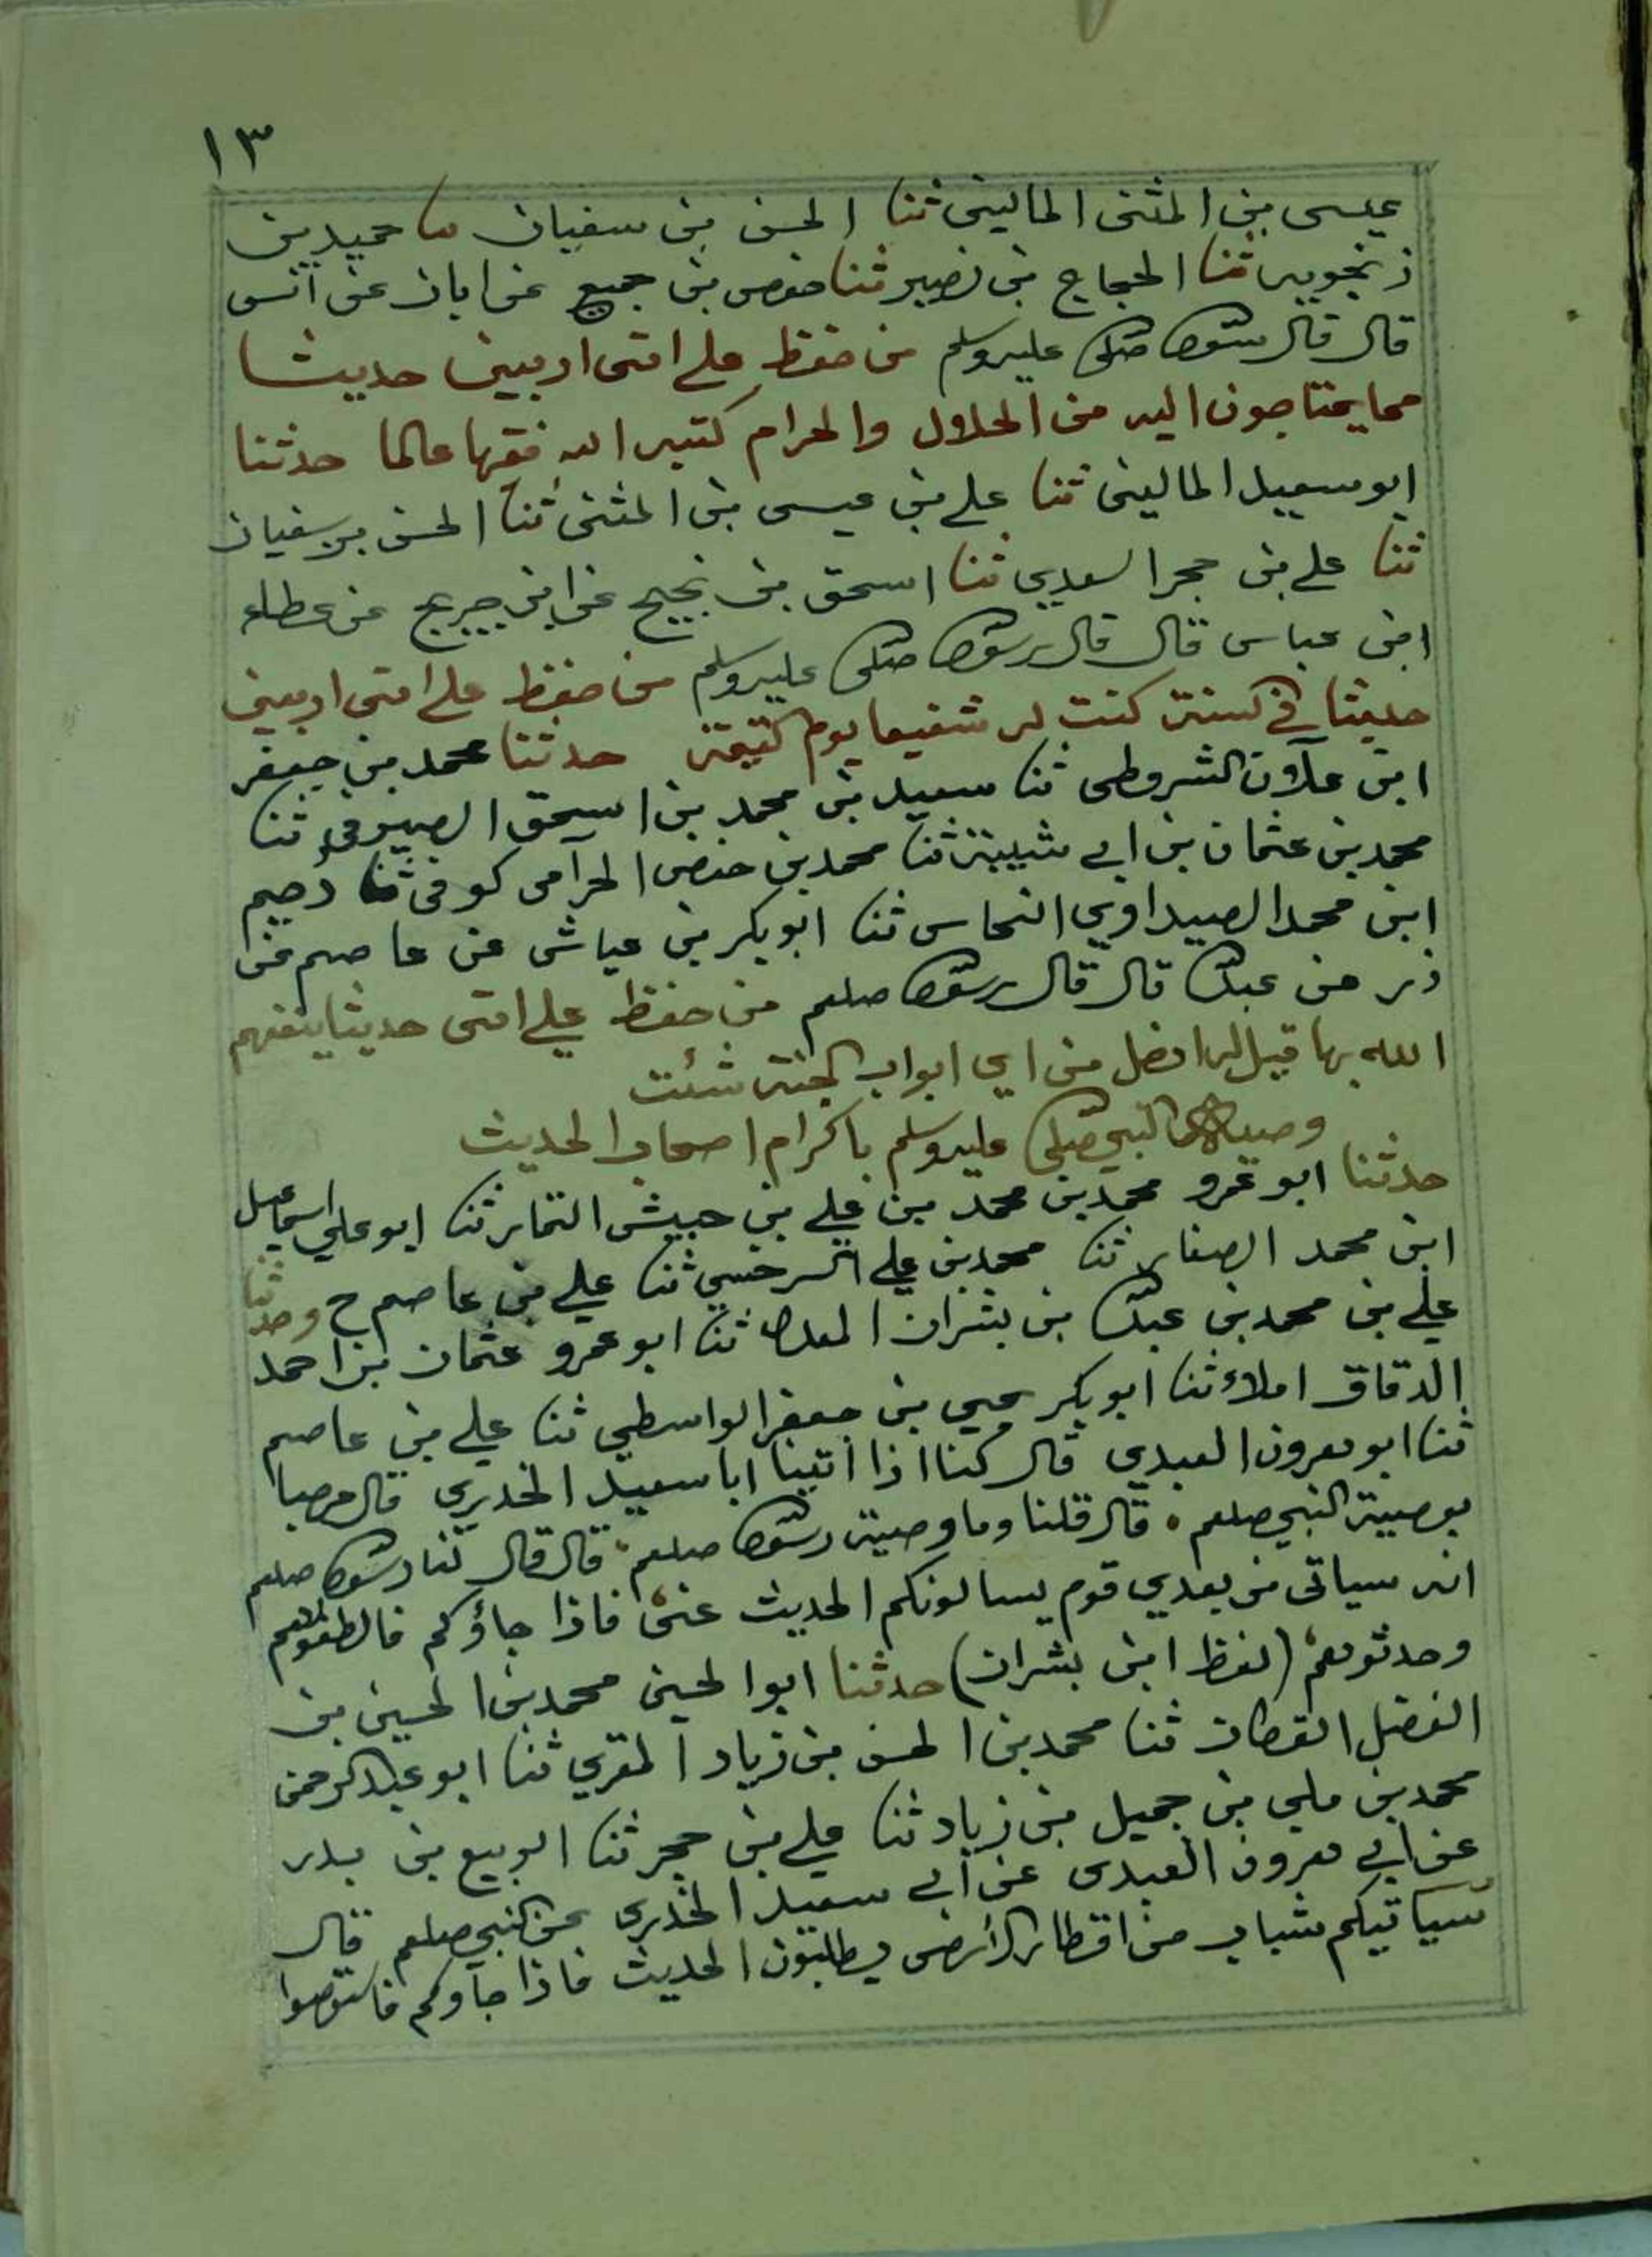 ١٣
عيسى بن المثنى الماليني ثنا الحسن بن سفيان ثنا حميد بن
زنجويه ثنا الحجاج بن نصير ثنا حفص بن جميع عن ابان عن انس
قال قال رسول الله صلى الله عليه وسلم من حفظ على امتى اربعين حديثا
مما يحتاجون اليه من الحلال والحرام كتبه الله فقيها عالما حدثنا
ابو سعيد الماليني ثنا علي بن عيسى بن المثنى ثنا الحسن بن سفيان
ثنا علي بن حجر السعدي ثنا اسحق بن نجيح عن ابن جريج عن عطاء
ابن عباس قال قال رسول الله صلى الله عليه وسلم من حفظ على امتى اربعين
حديثا في السنة كنت له شفيعا يوم القيمة حدثنا محمد بن جعفر
ابن علان الشروطى ثنا سعيد بن محمد بن اسحق الصيرفى ثنا
محمد بن عثمان بن ابي شيبة ثنا محمد بن حفص الحرامى كوفى ثنا دحيم
ابن محمد الصيداوي النحاس ثنا ابو بكر بن عياش عن عاصم عن
زر عن عبد الله قال قال رسول الله صلعم من حفظ علي امتى حديثا ينفعهم
الله بها قيل له ادخل من اي ابواب الجنة شئت
وصية النبي صلى الله عليه وسلم باكرام اصحاب الحديث
حدثنا ابو عمرو محمد بن محمد بن علي بن حبيش التمار ثنا ابو علي اسماعيل
ابن محمد الصفار ثنا محمد بن علي السرخسي ثنا علي بن عاصم ح وحدثنا
علي بن محمد بن عبد الله بن بشران المعدل ثنا ابو عمرو عثمان بن احمد
الدقاق املاء ثنا ابو بكر يحيي بن جعفر الواسطي ثنا علي بن عاصم
ثنا ابو هرون العبدي قال كنا اذا اتينا ابا سعيد الخدري قال مرحبا
بوصية النبي صلعم . قال قلنا وما وصية رسول الله صلعم قال قال لنا رسول الله صلعم
انه سياتى من بعدي قوم يسالونكم الحديث عنى فاذا جاؤكم فالطفوهم
وحدثوهم (لفظ ابن بشران) حدثنا ابو الحسين محمد بن الحسين بن
الفضل القطان ثنا محمد بن الحسن بن زياد المقري ثنا ابو عبد الرحمن
محمد بن علي بن جميل بن زياد ثنا علي بن حجر ثنا الربيع بن بدر
عن ابي هرون العبدى عن ابي سعيد الخدري عن النبي صلعم قال
سياتيكم شباب من اقطار الارض يطلبون الحديث فاذا جاؤكم فاستوصوا